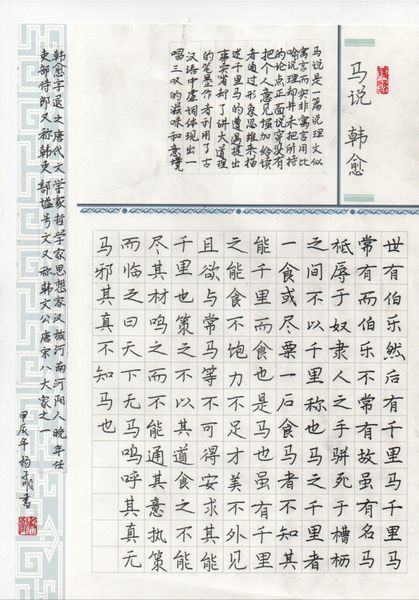 马说 韩愈
马说是一篇说理文似
寓言而实非寓言用比
喻说理却并未把所持
的论点正面说穿没有
把个人意见强加给读
者通过形象思维来描
述千里马的遭遇提出
事实省却了讲大道理
的笔墨作者利用了古
汉语中虚词体现出一
唱三叹的滋味和意境
世有伯乐然后有千里马千里马
常有而伯乐不常有故虽有名马
祗辱于奴隶人之手骈死于槽枥
之间不以千里称也马之千里者
一食或尽粟一石食马者不知其
能千里而食也是马也虽有千里
之能食不饱力不足才美不外见
且欲与常马等不可得安求其能
千里也策之不以其道食之不能
尽其材鸣之而不能通其意执策
而临之曰天下无马呜呼其真无
马邪其真不知马也
韩愈字退之唐代文学家哲学家思想家汉族河南河阳人晚年任
吏部侍郎又称韩吏部谥号文又称韩文公唐宋八大家之一
甲辰年杨 书